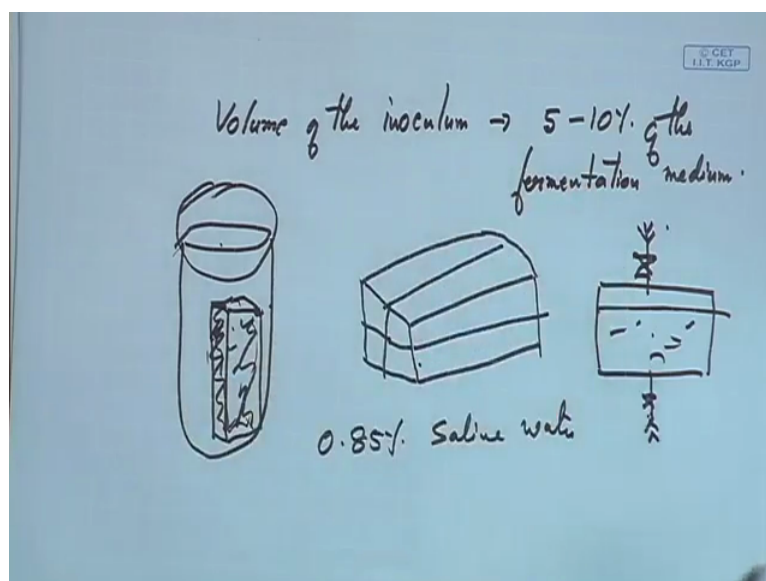 © CET
I.I.T. KGP
Volume of the inoculum → 5-10% of the
fermentation medium.
0.85% Saline water